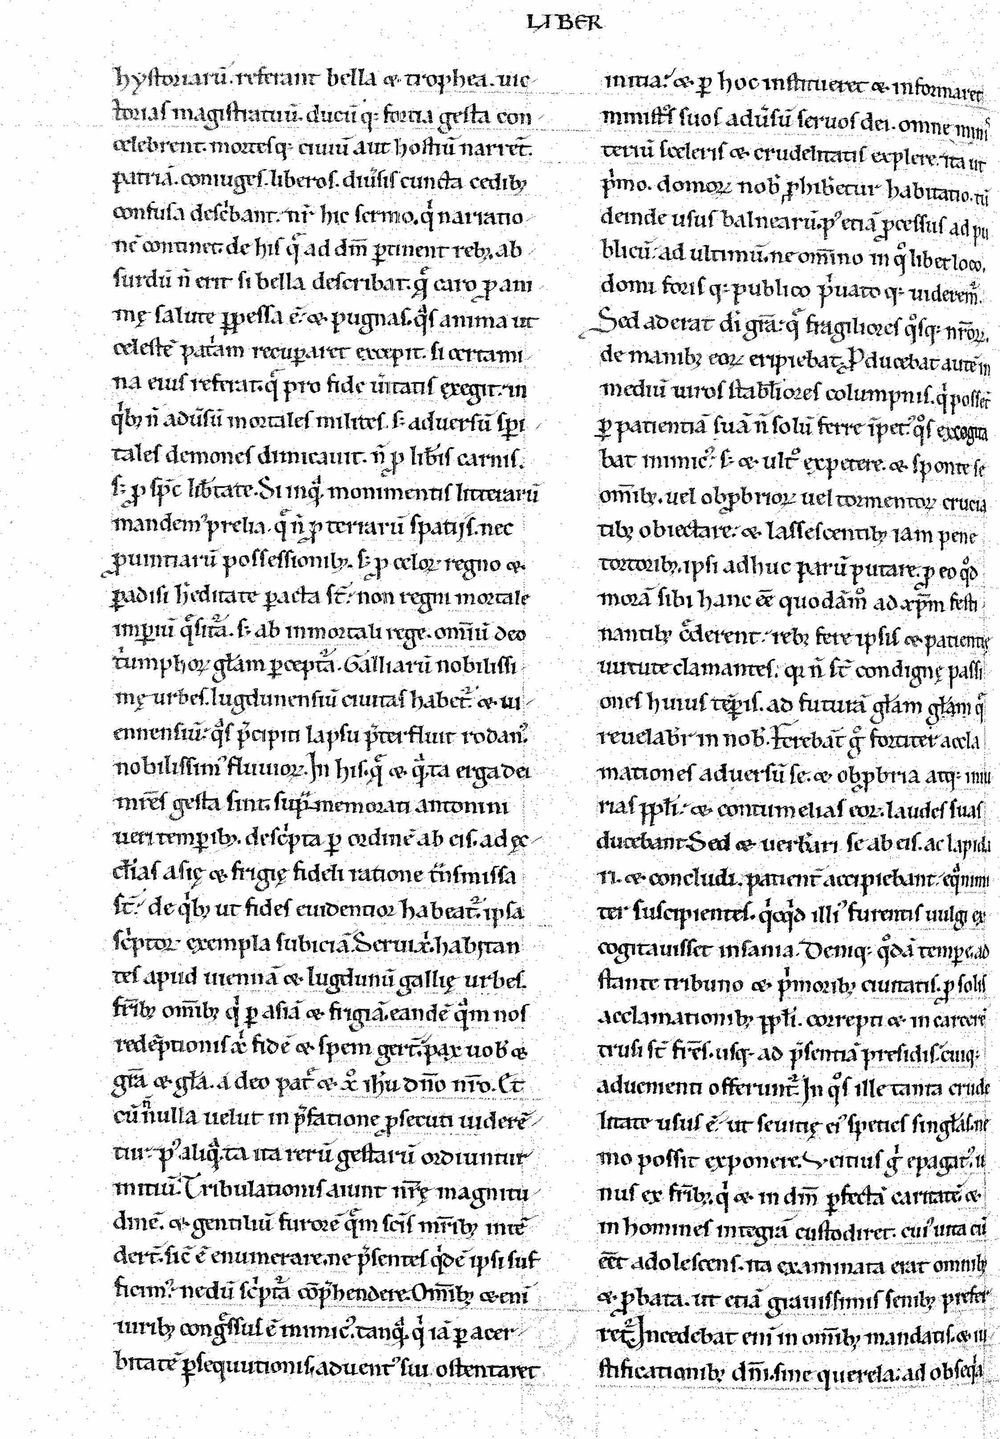 LIBER
hystoriarū. referant bella & trophea. uic
torias magistratuū. ducū q; fortia gesta con
celebrent. mortesq; ciuiū aut hostiū narrēt.
patriā. coniuges. liberos. diu̾sis cuncta cedibꝫ
confusa desc̾bant. nr̄ hic sermo. q̾ narratio
nē continet. de his q̾ ad dm̄ ꝑtinent rebꝫ. ab
surdū n̄ erit si bella describat. q̾ caro ꝓ ani
mę salute ꝑpessa ē. & pugnas. q̾s anima ut
celestē pat̾am recuꝑaret excepit. si certami
na eius referat. q̾ pro fide u̾itatis exegit. in
q̾bꝫ n̄ adu̾sū mortales milites. s; aduersū sp̄i
tales demones dimicauit. n̄ ꝓ lib̾is carnis.
s; ꝓ sp̄c lib̾tate. Si inq̾ monimentis litterarū
mandem̾ prelia. q̾ n̄ ꝓ terrarū spatiis. nec
ꝓuintiarū possessionibꝫ. s; ꝓ celoꝝ regno &
ꝑadisi h̾editate ꝑacta st̄. non regni mortale
imꝑiū q̾sit̾a. s; ab inmortali rege. omīū deo
t̾umphoꝝ gl̄am ꝑcept̾a. Galliarū nobilissi
mę urbes. lugdunensiū ciuitas habet̾. & ui
ennensiū. q̾s p̾cipiti lapsu p̾terfluit rodan̾.
nobilissim̾ fluuioꝝ. In his. q̾ & q̾ ta erga dei
mr̄es gesta sint. sup̾ memorati antonini
ueri temꝑibꝫ. desc̾pta ꝑ ordinē ab eis. ad ęc
cl̄ias asię & frigię fideli ratione t̾nsmissa
st̄. de q̾bꝫ ut fides euidentior habeat̾. ipsa
sc̾ptoꝝ exempla subiciā. Serui xp̄i. habitan
tes apud uiennā & lugdunū gallię urbes.
fr̄ibꝫ omībꝫ q̾ ꝑ asiā & frigiā. eandē q̾m nos
redēptionis & fidē & spem ger̄t. pax uob̄ &
gr̄a & gl̄a. a deo pat̾ & xp̄o ih̄u dn̄o nr̄o. Et
cū n̄nulla uelut in p̾fatione ꝓsecuti uiderē
tur. p̾ aliq̾ta ita rerū gestarū ordiuntur
initiū. Tribulationis aiunt nr̄ę magnitu
dinē. & gentiliū furorē q̾m scīs mr̄ibꝫ intē
der̄t. sic̄ ē enumerare. ne p̾sentes q̾dē ipsi suf
ficim̾. nedū sc̾pt̾a cōp̾hendere. Omībꝫ & enī
uiribꝫ cong̾ssus ē inimic̾. tanq̾ q̾ iā ꝑ acer
bitatē ꝑsequutionis. aduent̾ sui ostentaret
initia. & ꝑ hoc institueret & informaret
minist̾s suos adu̾sū seruos dei. omne minis
teriū sceleris & crudelitatis explere. ita ut
p̾mo. domoꝝ nob̄ ꝓhib̾etur habitatio. tū
deinde usus balnearū. p̾ etiā ꝓcessus ad pu
blicū. ad ultimū. ne omīno in q̾libet loco.
domi foris q; publico p̾uato q; uiderem̾.
Sed aderat di̾ gr̄a. q̾ fragiliores q̾sq; nr̄oꝝ.
de manibꝫ eoꝝ eripiebat. Ꝓducebat autē in
mediū uiros stabiliores columpnis. q̾ possēt
ꝑ patientiā suā n̄ solū ferre īpet̾. q̾s excogita
bat inimic̾. s; & ult̾o expetere. & sponte se
omībꝫ. uel obꝓbrioꝝ uel tormentoꝝ crucia
tibꝫ obiectare. & lassescentibꝫ iam pene
tortoribꝫ. ipsi adhuc parū putare. ꝓ eo q̾d
morā sibi hanc eē quodāmo̾ ad xp̄m festi
nantibꝫ c̾ederent. rebꝫ fere ipsis & patientię
uirtute clamantes. qꝛ n̄ st̄ condignę passi
ones huius tēꝑis. ad futurā gl̄am gl̄am q̾
reuelab̄r in nob̄. Ferebāt g̾ fortiter accla
mationes aduersū se. & obꝓbria atq; iniu
rias ppl̄i. & contumelias eoꝝ. laudes suas
ducebant. Sed & uerb̾ari se ab eis. ac lapida
ri. & concludi. patient̄ accipiebant. eq̾nimi
ter suscipientes. q̾cq̾d illi̾ furentis uulgi ex
cogitauisset insania. Deniq; q̾dā tempe. ad
stante tribuno & p̾moribꝫ ciuitatis. ꝓ solis
acclamationibꝫ ppl̄i. correpti & in carcerē
trusi st̄ fr̄es. usq; ad p̾sentiā presidis. cuiq;
aduenienti offerunt̾. In q̾s ille tanta crude
litate usus ē. ut seuitię ei̾ species singl̄as. ne
mo possit exponere. Vetius g̾ epagat̾. u
nus ex fr̄ibꝫ. q̾ & in dm̄ ꝑfectā caritatē &
in homines integrā custodiret. cui̾ uita cū
eēt adolescens. ita examinata erat omnibꝫ
& ꝓbata. ut etiā grauissimis senibꝫ prefer
ret̾. Incedebat enī in omībꝫ mandatis. & iu
stificationibꝫ dn̄i. sine querela. ad obseq̾a